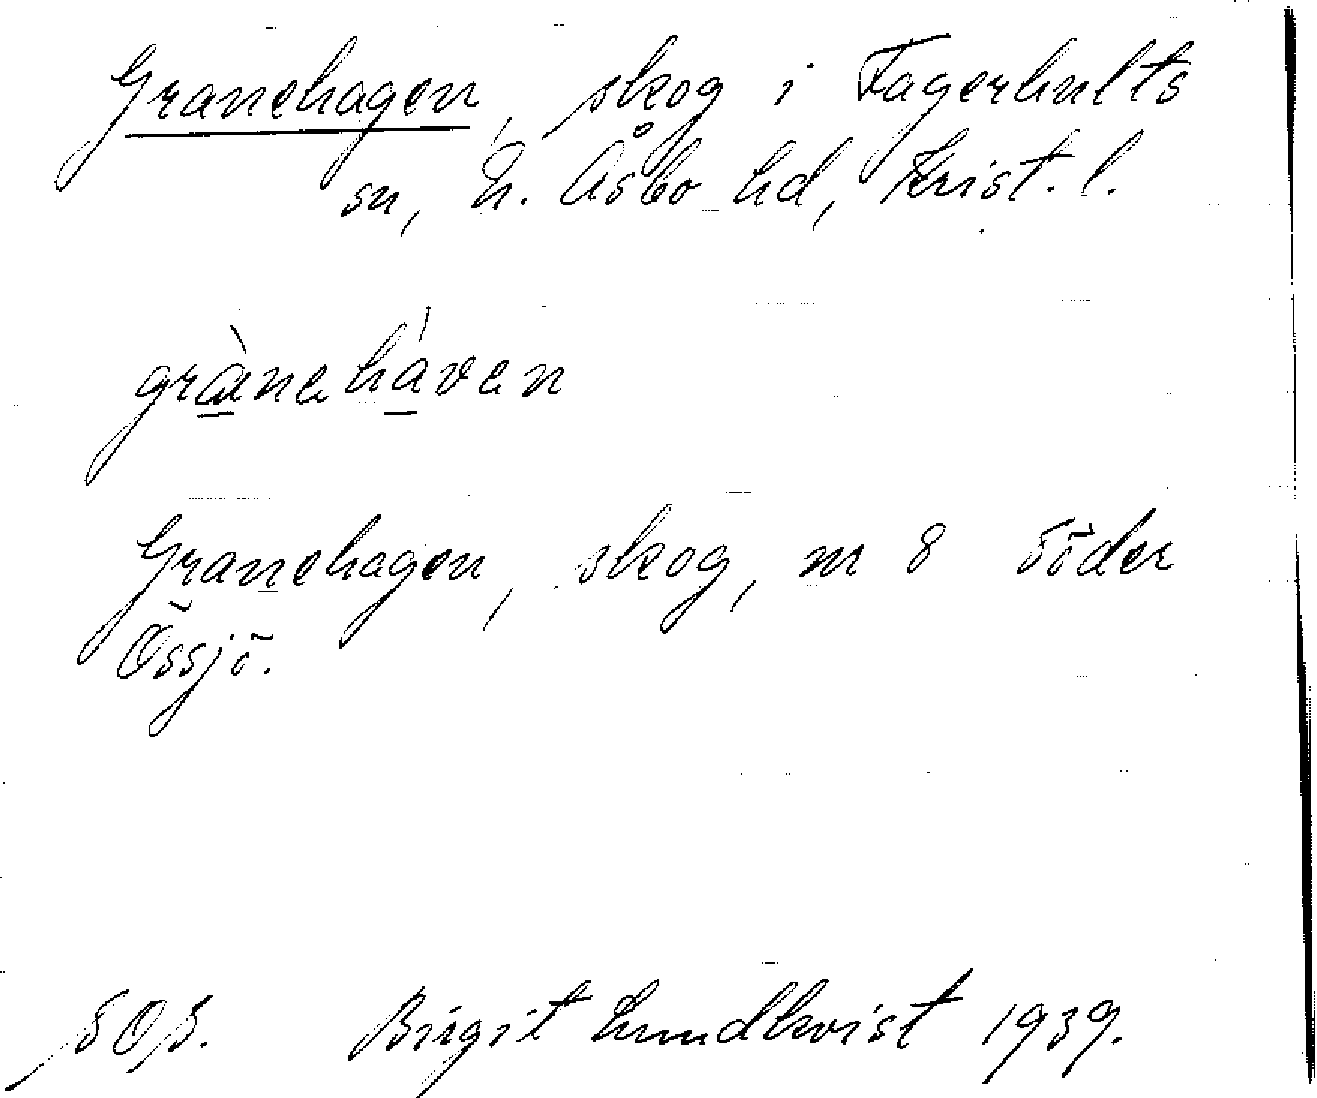 Granehagen, skog i Fagerhults
sn, N. Åsbo hd, Krist. l.
grànehávan
Granehagen, skog, m 8 Söder
Össjö.
SOB. Birgit Lundkvist 1939.